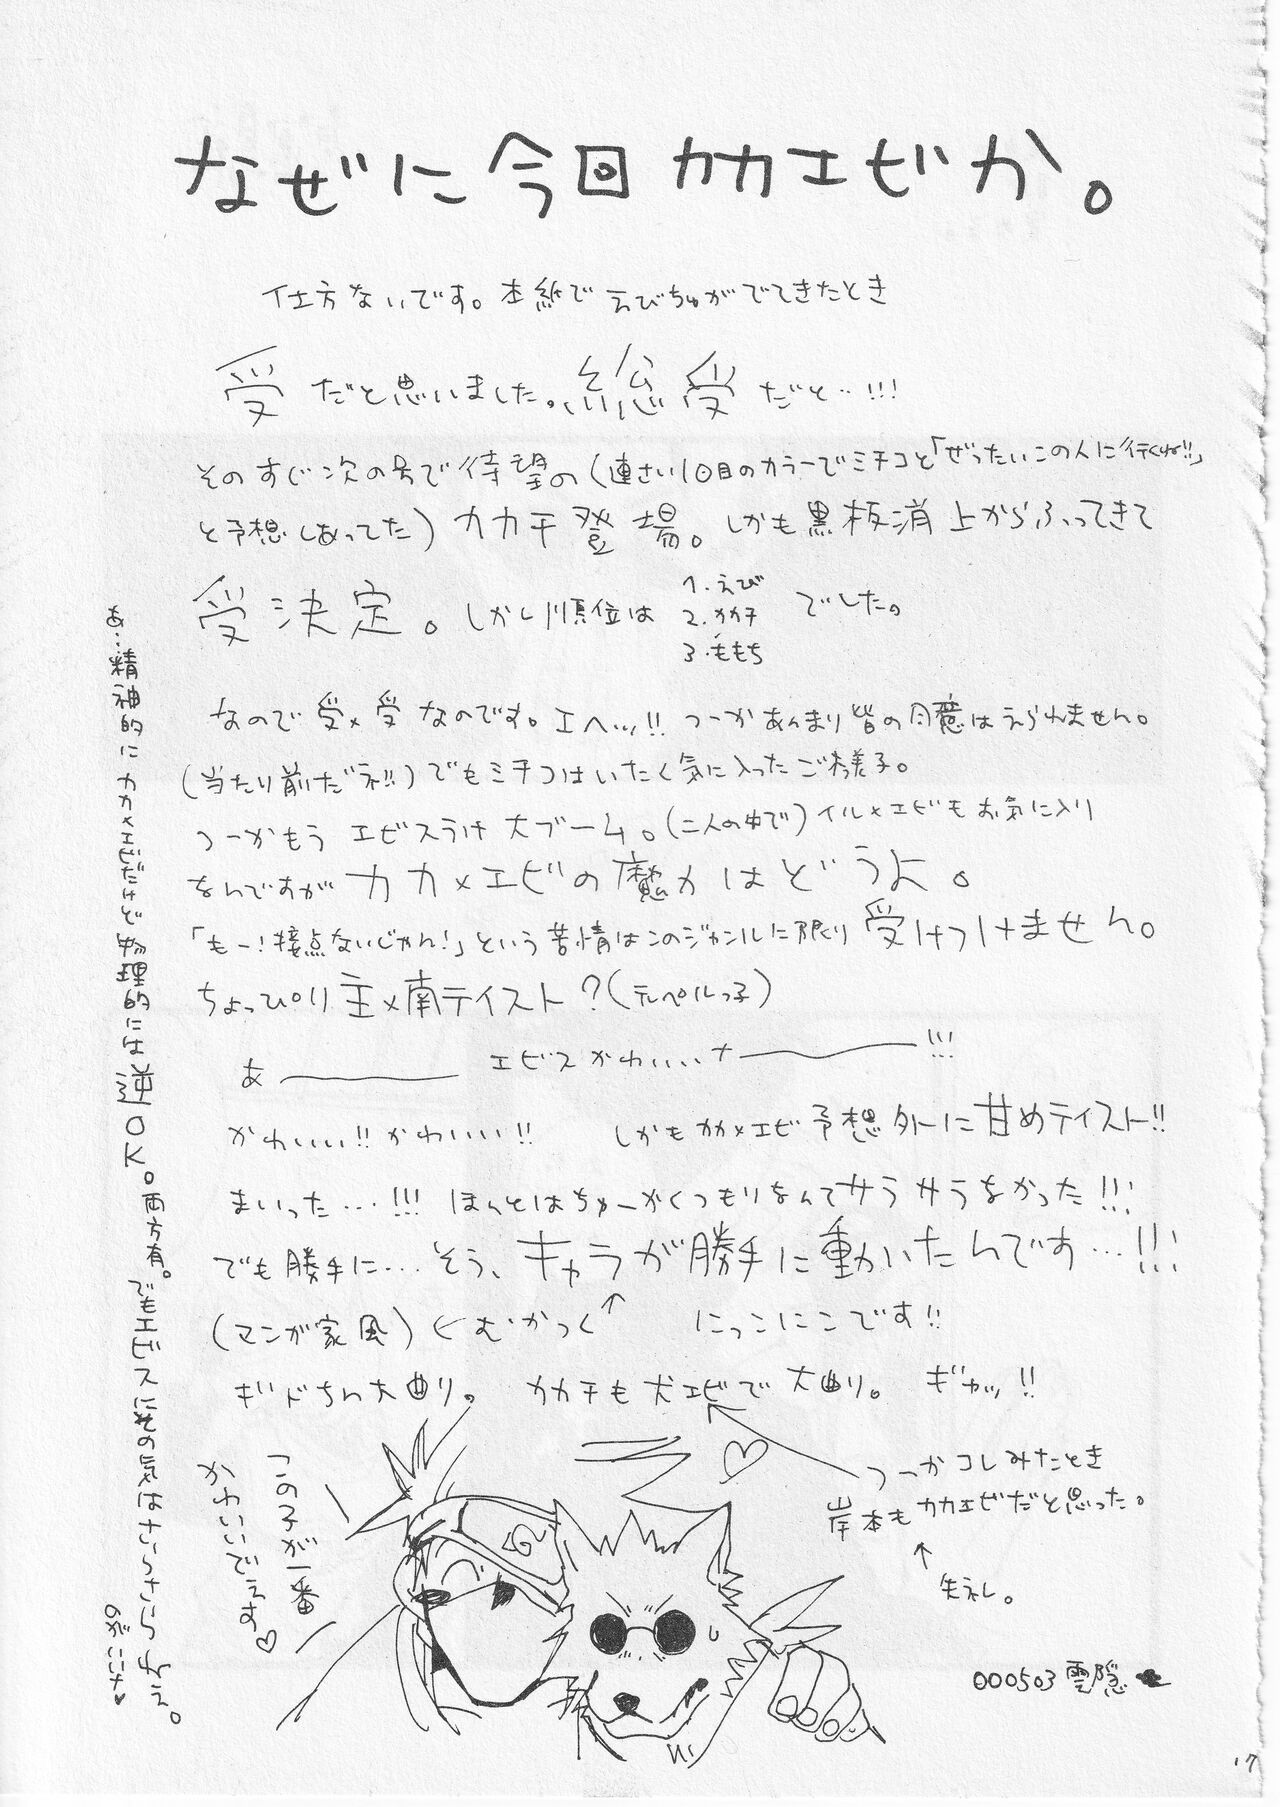 なぜに今回カカエビか。
仕方ないです。本紙でえびちゅがでてきたとき
受だと思いました。総受だと…!!!
そのすぐ次の号で待望の(連さい1回目のカラーでミチコと「ぜったいこの人に行くね!!」
と予想しあってた)カカチ登場。しかも黒板消上からふってきて
受決定。しかし順位は
1.えび
2.カカチ
3.ももち
でした。
なので受×受なのです。エヘッ!! つーかあんまり皆の同意はえられません。
(当たり前だネ!!)でもミチコはいたく気に入ったご様子。
つーかもうエビスうけ大ブーム。(二人の中で)イル×エビもお気に入り
なんですがカカ×エビの魔力はどうよ。
「もー!接点ないじゃん!」という苦情はこのジャンルに限り受けつけません。
ちょっぴり主×南テイスト?(テルペルっ子)
あ――― エビスかわいいナ―――!!!
かわいい!!かわいい!! しかもカカ×エビ予想外に甘めテイスト!!
まいった…!!! ほんとはちゅーかくつもりなんてサラサラなかった!!!
でも勝手に…そう、キャラが勝手に動いたんです…!!!
(マンガ家風)←むかつく↑ にっこにこです!!
ギドちん大曲り。カカチも犬エビで大曲り。ギャッ!!
つーかコレみたとき
岸本もカカエビだと思った。
↑
失礼。
この子が一番
かわいいでえす♡
000503 雲隠
あ…精神的にカカ×エビだけど物理的には逆OK。両方有。でもエビスにその気はさらさらねえ。
のがここナ♥
17